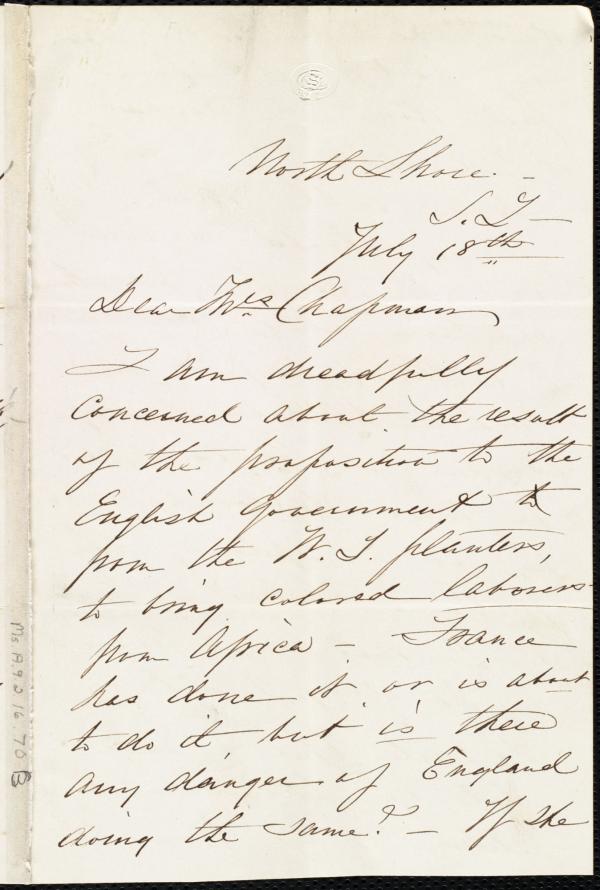 North Shore. –
S. I –
July 18th
Dear Mrs Chapman
I am dreadfully
concerned about the result
of the proposition to the
English Government
from the W. I. planters,
to bring colored laborers
from Africa – France
has done it or is about
to do it, but is there
any danger of England
doing the same? – If she
Ms.A.9.2 16.70 B